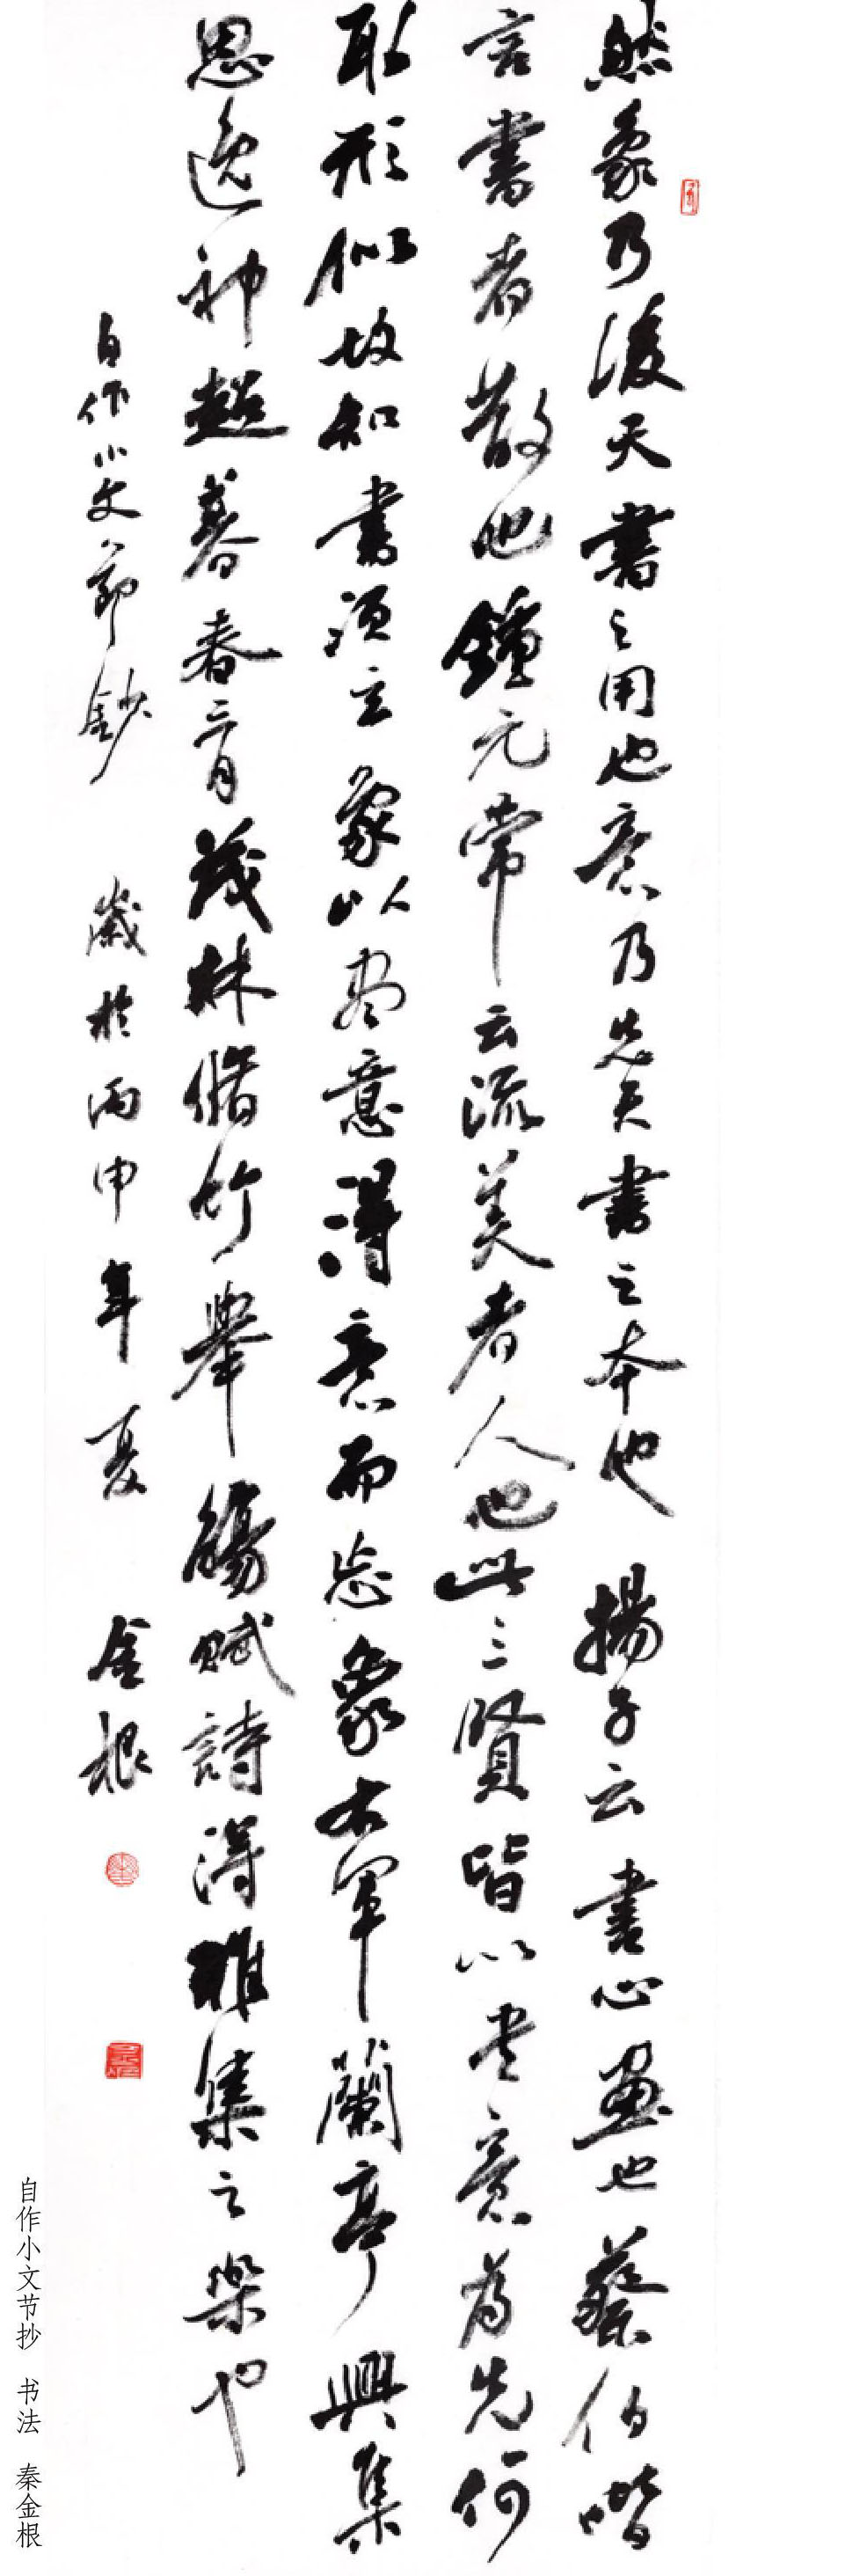 然象乃後天書之用也意乃先天書之本也揚子云書心畫也蔡伯喈
言書者散也鍾元常云流美者人也此三賢皆以書意為先何
取形似故知書須立象以盡意得意而忘象右軍蘭亭興集
思逸神超暮春三月茂林脩竹舉觴賦詩得雅集之樂也
自作小文節鈔 歲於丙申年夏 金根
自作小文节抄 书法 秦金根